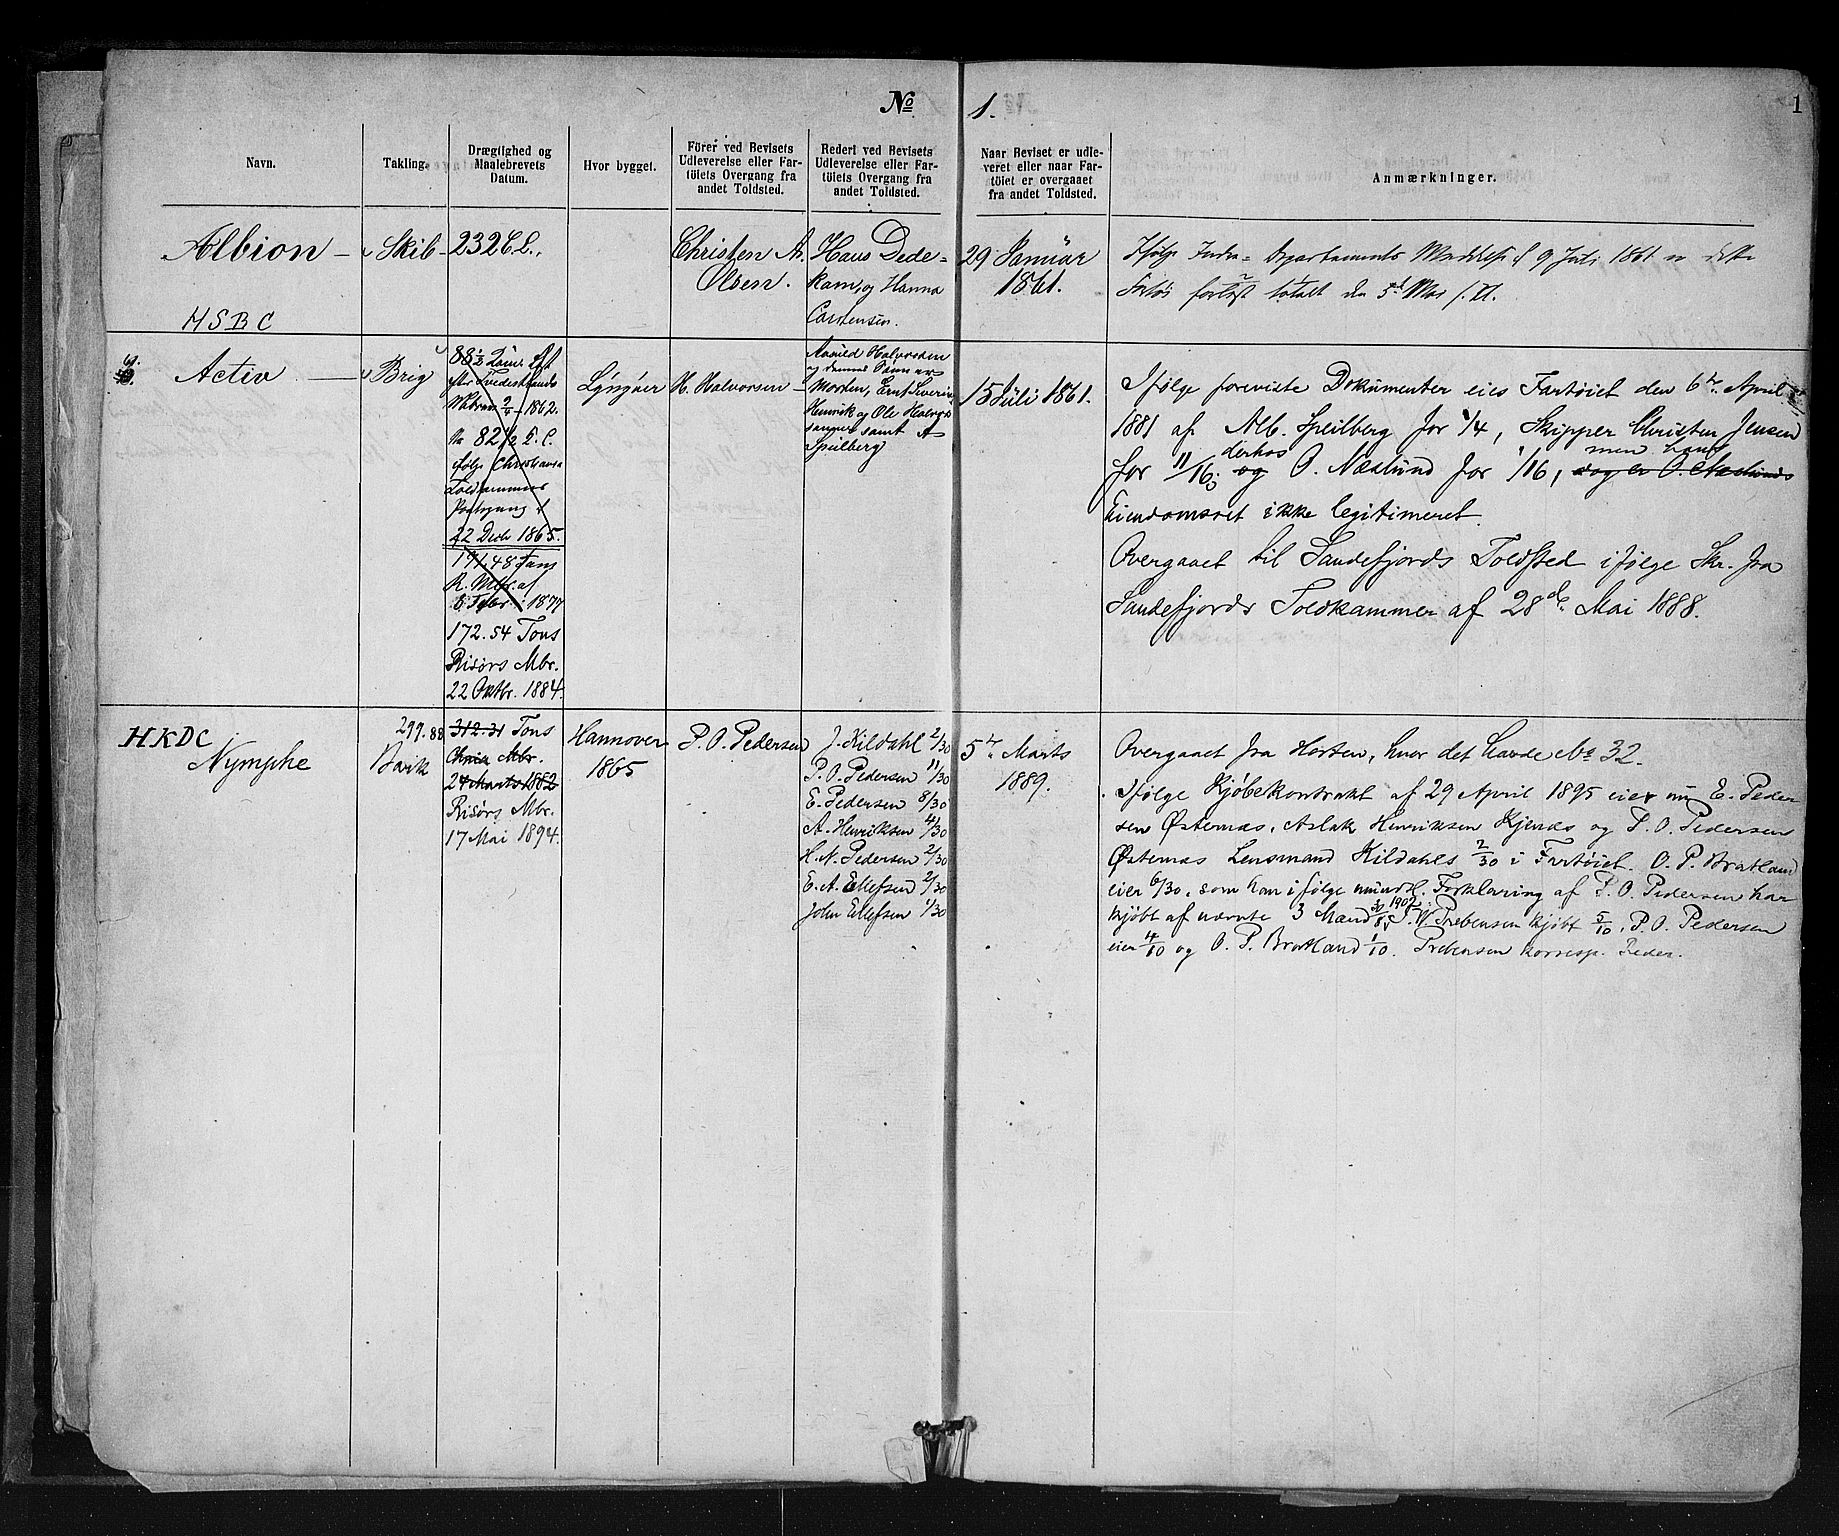 № 1.
1
Navn.
Takling.
Drægtighed og
Maalebrevets
Datum.
Hvor bygget.
Förer ved Bevisets
Udleverelse eller Far-
töiets Overgang fra
andet Toldsted.
Rederi ved Bevisets
Udleverelse eller Far-
töiets Overgang fra
andet Toldsted.
Naar Beviset er udle-
veret eller naar Far-
töiet er overgaaet
fra andet Toldsted.
Anmærkninger.
Albion
HSBC
Skib
232 C.L.
Christen A.
Olsen.
Hans Dede-
kam, og Hanna
Carstensen.
29 Januar
1861.
Ifølge Indre- Departements 9 Juli 1861
forlist totalt den 5t Mai
Activ
Brig
88½
efter Tvedestrands
1862.
82½ C.L.
ifølge Christiania
Toldkammer
22 Decbr 1865.
191.48 Tons
R. Mbr. af
Febr. 1877
172.54 Tons
Risørs Mbr.
22 Oktbr. 1884.
Lyngøer
H. Halvorsen
Aanild Halvorsen
og dennes Sønner
Morten, Ernt Severin,
Henrik og Ole Halvor-
sønner samt A
Speilberg
15 Juli 1861.
Ifølge foreviste Dokumenter eies Fartøiet den 6te April
1881 af Alb. Speilberg for 1/4, Skipper Christen Jensen
derhos
men hans
for 11/16, og O. Næslund for 1/16, dog er O. Næslunds
Eiendomsret ikke legitimeret.
Overgaaet til Sandefjords Toldsted ifølge Skr. fra
Sandefjords Toldkammer af 28de Mai 1888.
HKDC
Nymphe
299.88
Bark
312.31 Tons
Chria Mbr.
24 Marts 1882
Risørs Mbr.
17 Mai 1894.
Hannover
1865
P. O. Pedersen
J. Kildahl 2/30
P. O. Pedersen 11/30
E. Pedersen 8/30
A. Henriksen 4/30
H. N. Pedersen 2/30
E. A. Ellefsen 2/30
John Ellefsen 1/30
5te Marts
1889.
Overgaaet fra Horten, hvor det havde No 32.
Ifølge Kjøbekontrakt af 29 April 1895 eier nu E. Peder
sen Østernæs, Aslak Henriksen Kjenæs og P. O. Pedersen
Østernæs Lensmand Kildahls 2/30 i Fartøiet. O. P. Bratland
eier 6/30, som han ifølge mundtl. Forklaring af P. O. Pedersen har
kjøbt af nævnte 3 Mænd. 30/8 1902: T. W. Prebensen kjøbt 5/10, P. O. Pedersen
eier 4/10 og O. P. Bratland 1/10. Prebensen korresp. Reder.